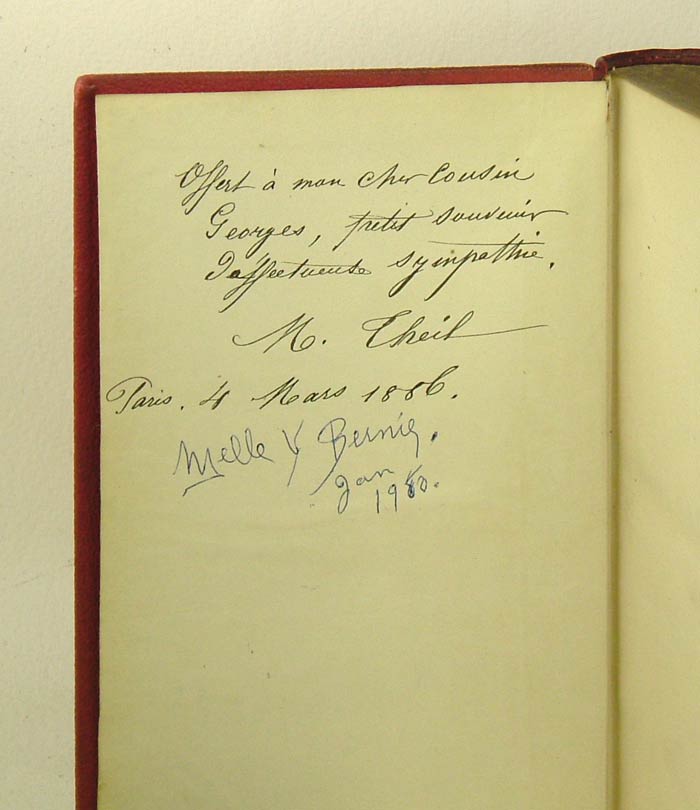 Offert à mon cher Cousin
Georges, petit souvenir
D'affectueuse sympathie.
M. Theil
Paris. 4 Mars 1886.
Melle Y Bernig.
Jan
1980.